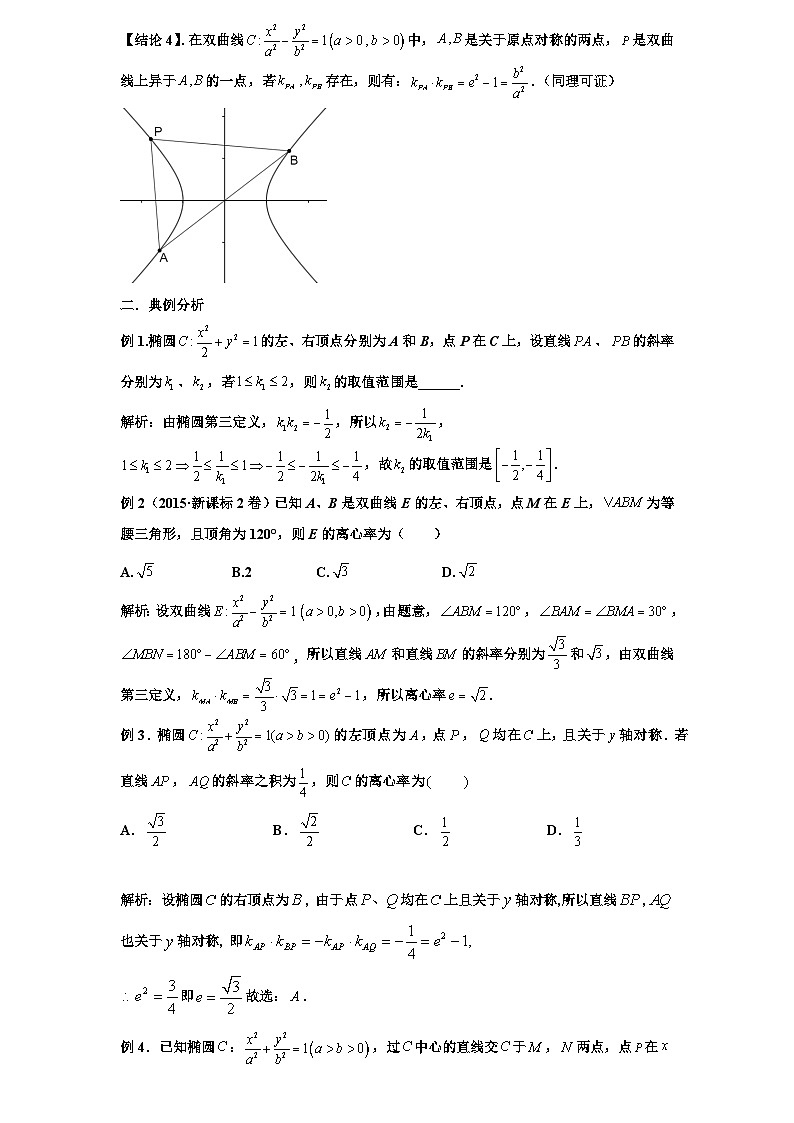 【结论 4】. 在双曲线 C: x²/a² − y²/b² = 1(a > 0, b > 0) 中，A, B 是关于原点对称的两点，P 是双曲
线上异于 A, B 的一点，若 k_PA, k_PB 存在，则有：k_PA · k_PB = e² − 1 = b²/a².（同理可证）
P
B
A
二．典例分析
例 1.椭圆 C: x²/2 + y² = 1 的左、右顶点分别为 A 和 B，点 P 在 C 上，设直线 PA、PB 的斜率
分别为 k₁、k₂，若 1 ≤ k₁ ≤ 2，则 k₂ 的取值范围是______．
解析：由椭圆第三定义，k₁k₂ = −1/2，所以 k₂ = −1/(2k₁)，
1 ≤ k₁ ≤ 2 ⇒ 1/2 ≤ 1/k₁ ≤ 1 ⇒ −1/2 ≤ −1/(2k₁) ≤ −1/4，故 k₂ 的取值范围是 [−1/2, −1/4]．
例 2（2015·新课标 2 卷）已知 A、B 是双曲线 E 的左、右顶点，点 M 在 E 上，∨ABM 为等
腰三角形，且顶角为 120°，则 E 的离心率为（    ）
A. √5    B.2    C. √3    D. √2
解析：设双曲线 E: x²/a² − y²/b² = 1 (a > 0, b > 0)，由题意，∠ABM = 120°，∠BAM = ∠BMA = 30°，
∠MBN = 180° − ∠ABM = 60°，所以直线 AM 和直线 BM 的斜率分别为 √3/3 和 √3，由双曲线
第三定义，k_MA · k_MB = √3/3 · √3 = 1 = e² − 1，所以离心率 e = √2．
例 3．椭圆 C: x²/a² + y²/b² = 1(a > b > 0) 的左顶点为 A，点 P，Q 均在 C 上，且关于 y 轴对称．若
直线 AP，AQ 的斜率之积为 1/4，则 C 的离心率为(    )
A．√3/2    B．√2/2    C．1/2    D．1/3
解析：设椭圆 C 的右顶点为 B，由于点 P、Q 均在 C 上且关于 y 轴对称,所以直线 BP, AQ
也关于 y 轴对称, 即 k_AP · k_BP = −k_AP · k_AQ = −1/4 = e² − 1,
∴ e² = 3/4 即 e = √3/2 故选：A．
例 4．已知椭圆 C: x²/a² + y²/b² = 1(a > b > 0)，过 C 中心的直线交 C 于 M，N 两点，点 P 在 x